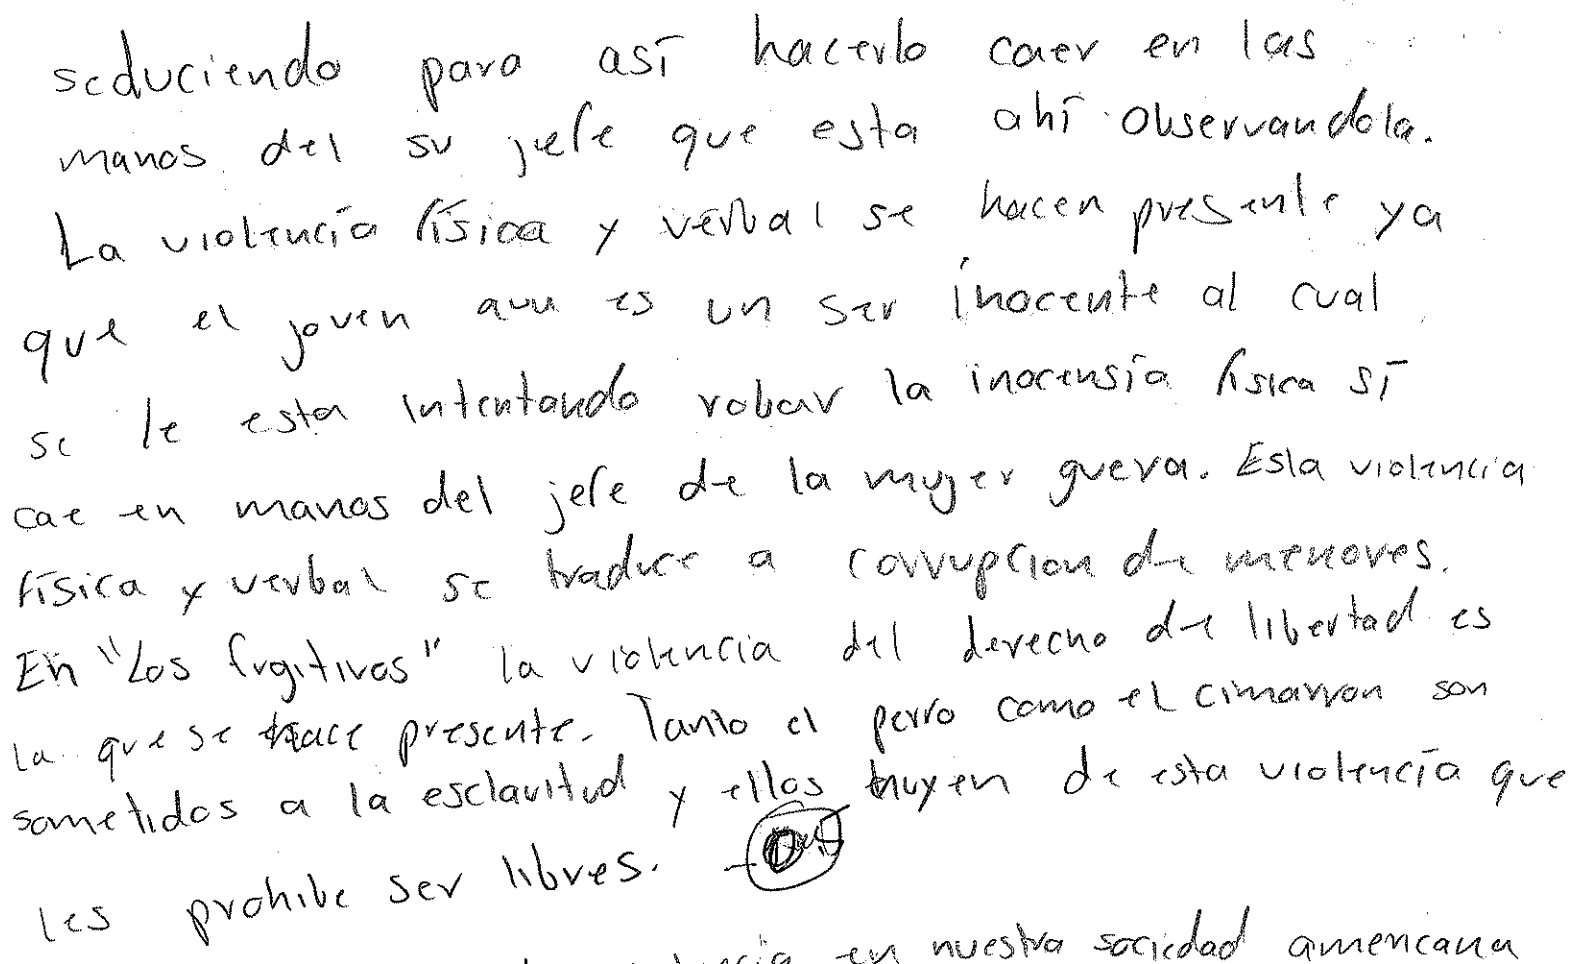 seduciendo para así hacerlo caer en las
manos del su jefe que esta ahí observandola.
La violencía física y verbal se hacen presente ya
que el joven aun es un ser inocente al cual
se le esta intentando robar la inocensía física sí
cae en manos del jefe de la mujer gueva. Esta violencia
física y verbal se traduce a corrupcion de menores.
En "Los fugitivos" la violencia del derecho de libertad es
la que se hace presente. Tanto el perro como el cimarron son
sometidos a la esclavitud y ellos huyen de esta violencía que
les prohibe ser libres.
en nuestra sociedad americana